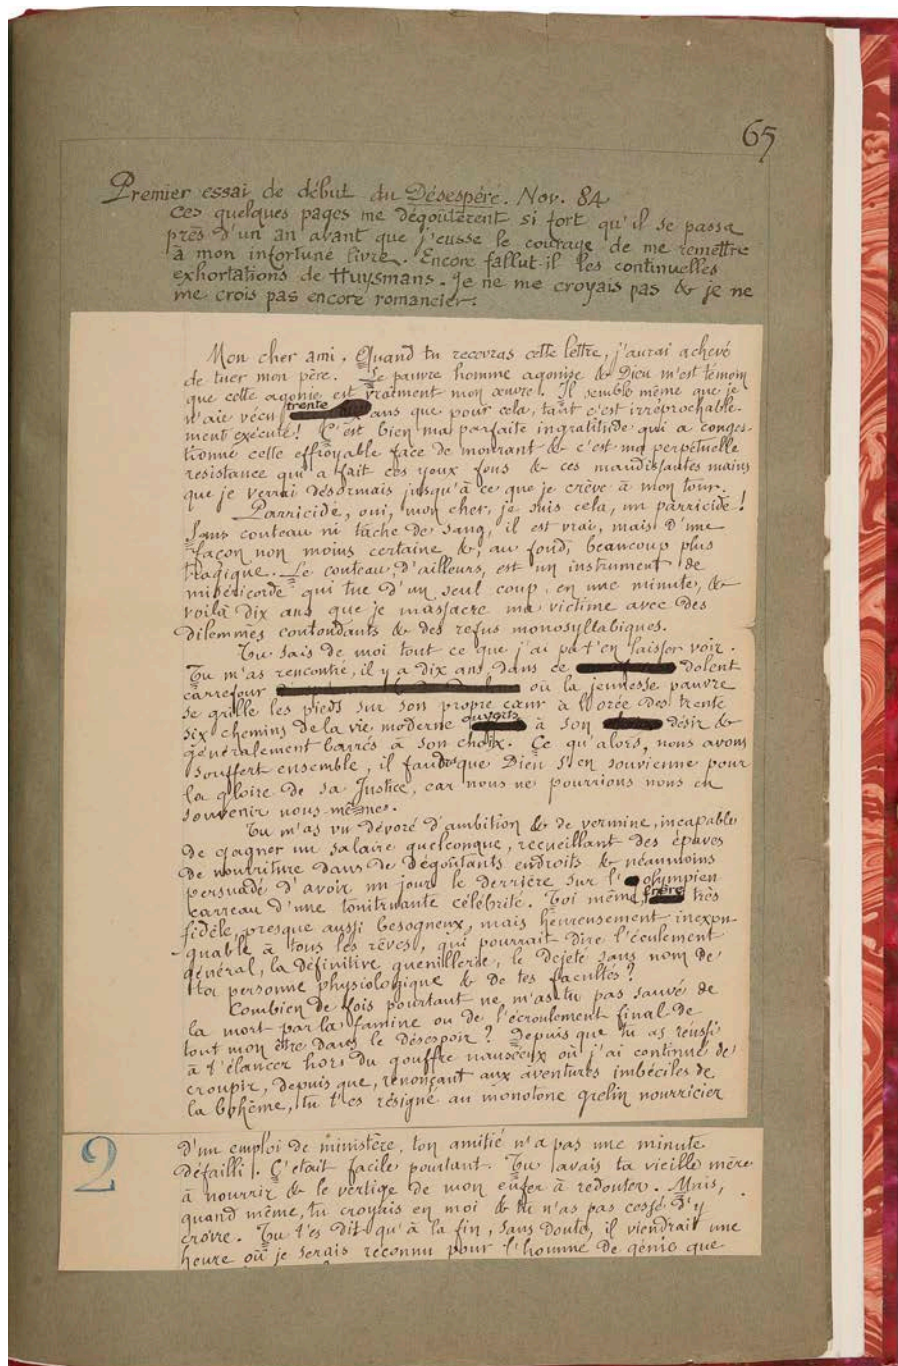 65
Premier essai de début du Désespéré. Nov. 84
Ces quelques pages me dégoûtèrent si fort qu'il se passa
près d'un an avant que j'eusse le courage de me remettre
à mon infortuné livre. Encore fallut-il les continuelles
exhortations de Huysmans. Je ne me croyais pas & je ne
me crois pas encore romancier.
Mon cher ami. Quand tu recevras cette lettre, j'aurai achevé
de tuer mon père. Le pauvre homme agonise & Dieu m'est témoin
que cette agonie est vraiment mon œuvre. Il semble même que je
n'aie vécu trente ans que pour cela, tant c'est irréprochable-
ment exécuté! C'est bien ma parfaite ingratitude qui a conges-
tionné cette effroyable face de mourant & c'est ma perpétuelle
résistance qui a fait ces yeux fous & ces maudissantes mains
que je verrai désormais jusqu'à ce que je crève à mon tour.
Parricide, oui, mon cher, je suis cela, un parricide!
Sans couteau ni tache de sang, il est vrai, mais d'une
façon non moins certaine &, au fond, beaucoup plus
tragique. Le couteau, d'ailleurs, est un instrument de
miséricorde qui tue d'un seul coup, en une minute, &
voilà dix ans que je massacre ma victime avec des
dilemmes contondants & des refus monosyllabiques.
Tu sais de moi tout ce que j'ai pu t'en laisser voir.
Tu m'as rencontré, il y a dix ans dans ce dolent
carrefour où la jeunesse pauvre
se grille les pieds sur son propre cœur à l'orée des trente
six chemins de la vie moderne ouverts à son désir &
généralement barrés à son choix. Ce qu'alors, nous avons
souffert ensemble, il faut que Dieu s'en souvienne pour
la gloire de sa Justice, car nous ne pourrions nous en
souvenir nous-mêmes.
Tu m'as vu dévoré d'ambition & de vermine, incapable
de gagner un salaire quelconque, recueillant des épaves
de nourriture dans de dégoûtants endroits & néanmoins
persuadé d'avoir un jour le derrière sur l'olympien
carreau d'une tonitruante célébrité. Toi même, frère très
fidèle, presque aussi besogneux, mais heureusement inexpu-
gnable à tous les rêves, qui pourrait dire l'éculement
général, la définitive guenillerie, le déjeté sans nom de
ta personne physiologique & de tes facultés?
Combien de fois pourtant ne m'as-tu pas sauvé de
la mort par la famine ou de l'écroulement final de
tout mon être dans le désespoir? Depuis que tu as réussi
à t'élancer hors du gouffre nauséeux où j'ai continué de
croupir, depuis que, renonçant aux aventures imbéciles de
la bohème, tu t'es résigné au monotone grelin nourricier
2
d'un emploi de ministère, ton amitié n'a pas une minute
défailli. C'était facile pourtant. Tu avais ta vieille mère
à nourrir & le vertige de mon enfer à redouter. Mais,
quand même, tu croyais en moi & tu n'as pas cessé d'y
croire. Tu t'es dit qu'à la fin, sans doute, il viendrait une
heure où je serais reconnu pour l'homme de génie que